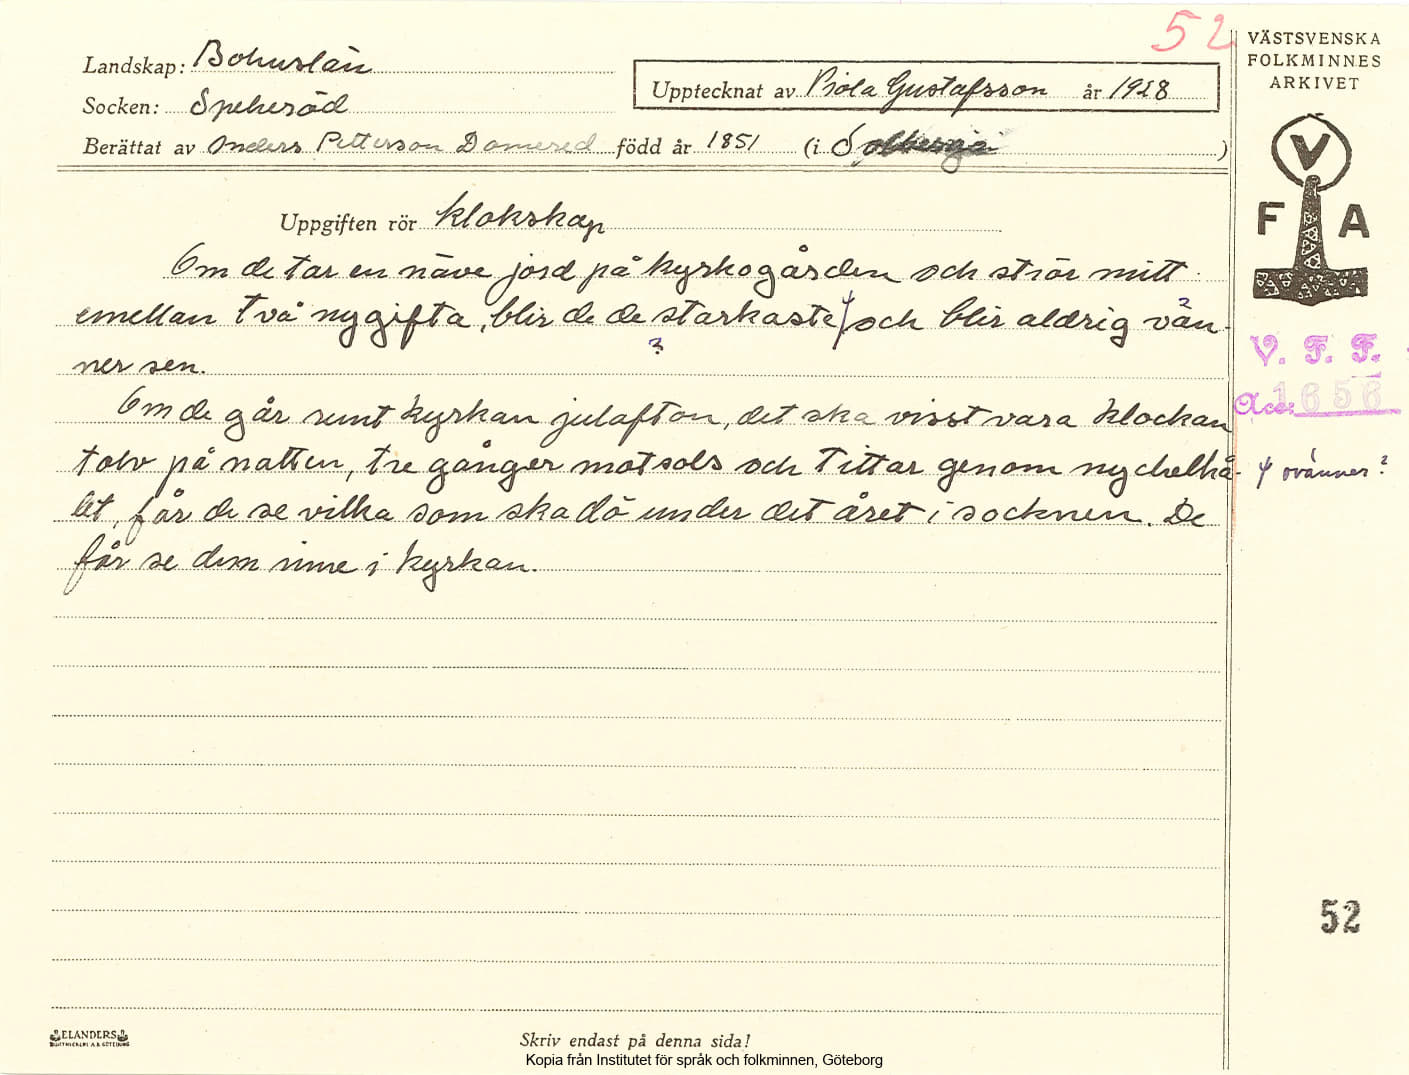 52
VÄSTSVENSKA
FOLKMINNES
ARKIVET
Landskap: Bohuslän
Socken: Spekeröd
Upptecknat av Viola Gustafsson år 1928
Berättat av Anders Petterson Domered född år 1851 (i Solberga)
V
F A
Uppgiften rör klokskap
Om de tar en näve jord på kyrkogården och strör mitt
emellan två nygifta, blir de de starkaste ψ och blir aldrig vän- ?
ner sen. ?
V. F. F.
Acc: 1656
Om de går runt kyrkan julafton, det ska visst vara klockan
tolv på natten, tre gånger motsols och tittar genom nyckelhå-
ψ ovänner?
let, får de se vilka som ska dö under det året i socknen. De
får se dem inne i kyrkan.
52
ELANDERS
Skriv endast på denna sida!
Kopia från Institutet för språk och folkminnen, Göteborg